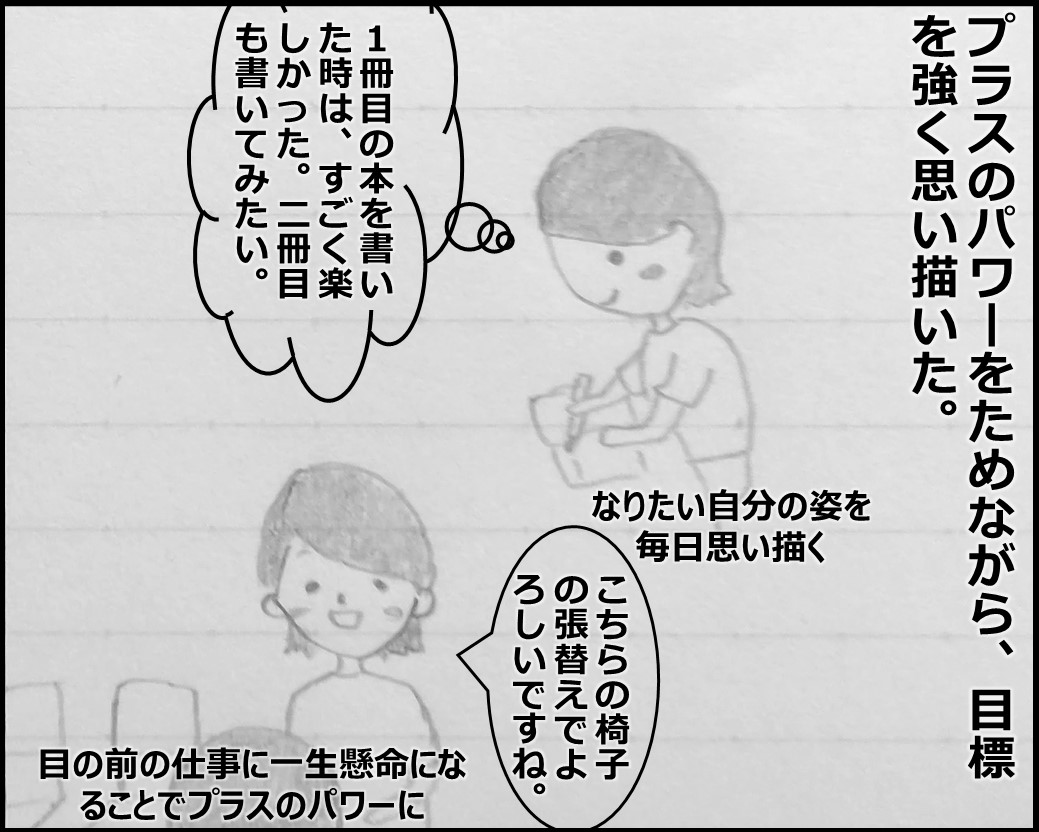 プラスのパワーをためながら、目標
を強く思い描いた。
１冊目の本を書い
た時は、すごく楽
しかった。二冊目
も書いてみたい。
なりたい自分の姿を
毎日思い描く
こちらの椅子
の張替えでよ
ろしいですね。
目の前の仕事に一生懸命にな
ることでプラスのパワーに